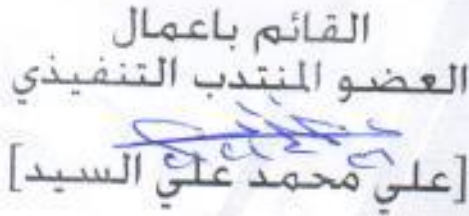 القائم باعمال
العضو المنتدب التنفيذي
[علي محمد علي السيد]